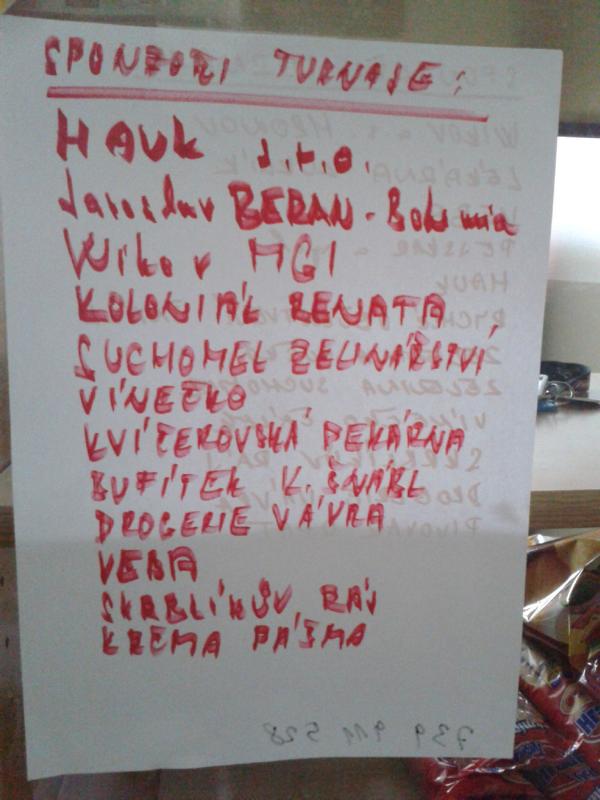 SPONZOŘI TURNAJE:
HAUK s.r.o.
Jaroslav BERAN - Bohemia
Wikov MGI
KOLONIÁL RENATA
SUCHOMEL ZELINÁŘSTVÍ
VÍNEČKO
KVÍČEROVSKÁ PEKÁRNA
BUFÍTEK K. ŠNÁBL
DROGERIE VÁVRA
VEBA
SKRBLÍKŮV RÁJ
KRČMA PAŠMA
739 911 528